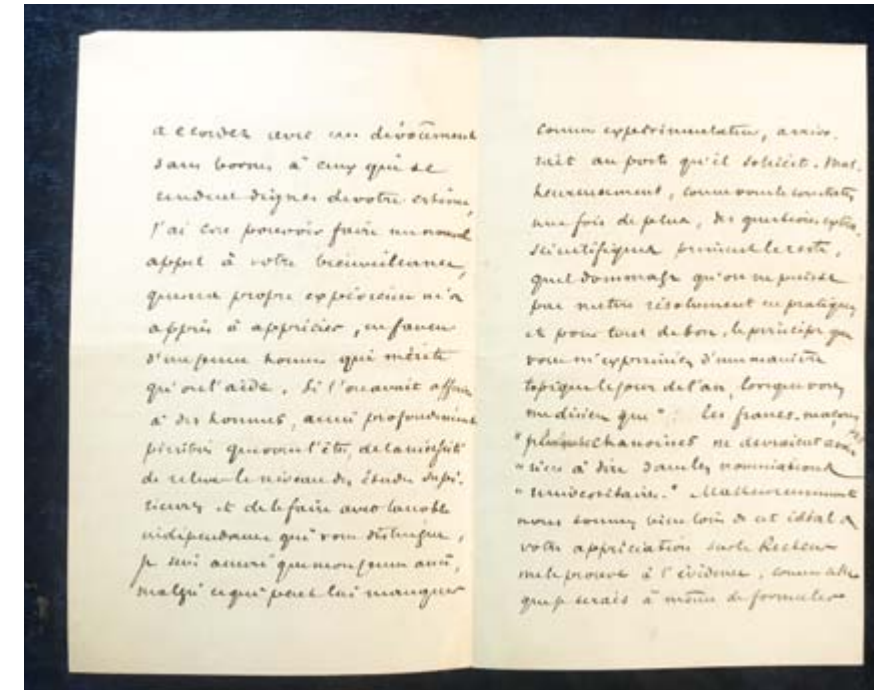 accorder avec un dévouement
sans bornes à ceux qui se
rendent dignes de votre estime,
j'ai cru pouvoir faire un nouvel
appel à votre bienveillance,
que ma propre expérience m'a
appris à apprécier, en faveur
d'un jeune homme qui mérite
qu'on l'aide. Si l'on avait affaire
à des hommes, aussi profondément
pénétrés que vous l'êtes, de la nécessité
de relever le niveau des études supé-
rieures et de le faire avec la noble
indépendance qui vous distingue,
je suis assuré que mon jeune ami,
malgré ce qui peut lui manquer
comme expérimentateur, arrive-
rait au poste qu'il sollicite. Mal-
heureusement, comme vous le constatez
une fois de plus, des questions extra-
scientifiques priment le reste,
quel dommage qu'on ne puisse
pas mettre résolument en pratique,
et pour tout de bon, le principe que
vous m'exprimiez d'une manière
topique le jour de l'an, lorsque vous
me disiez que " les francs-maçons
" chanoines ne devraient avoir
" rien à dire dans les nominations
" universitaires." Malheureusement
nous sommes bien loin de cet idéal &
votre appréciation sur le Recteur
me le prouve à l'évidence, comme celle
que je serais à même de formuler